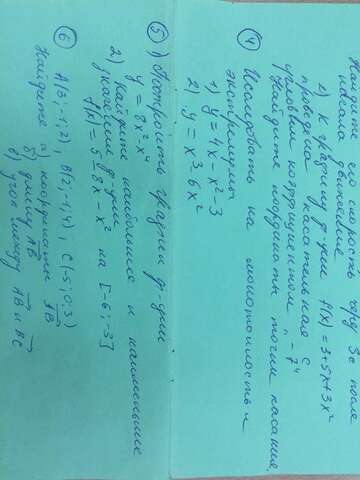 Найдите его скорость через 3с после
начала движения
2) К графику ф-ции f(x) = 3-5x+3x²
проведена касательная с
угловым коэффициентом „-7“
Найдите координаты точки касания.
④ Исследовать на монотонность и
экстремумы
1) y = 4x-x²-3
2) y = x³-6x²
⑤ 1) Построить график ф-ции
y = 8x²-x⁴
2) Найдите наибольшее и наименьшее
значение ф-ции
f(x) = 5-8x-x² на [-6;-3]
⑥ A(3;-1;2), B(2;-1;4), C(-5;0;3)
Найдите а) координаты AB
б) длину AB
в) угол между AB и BC